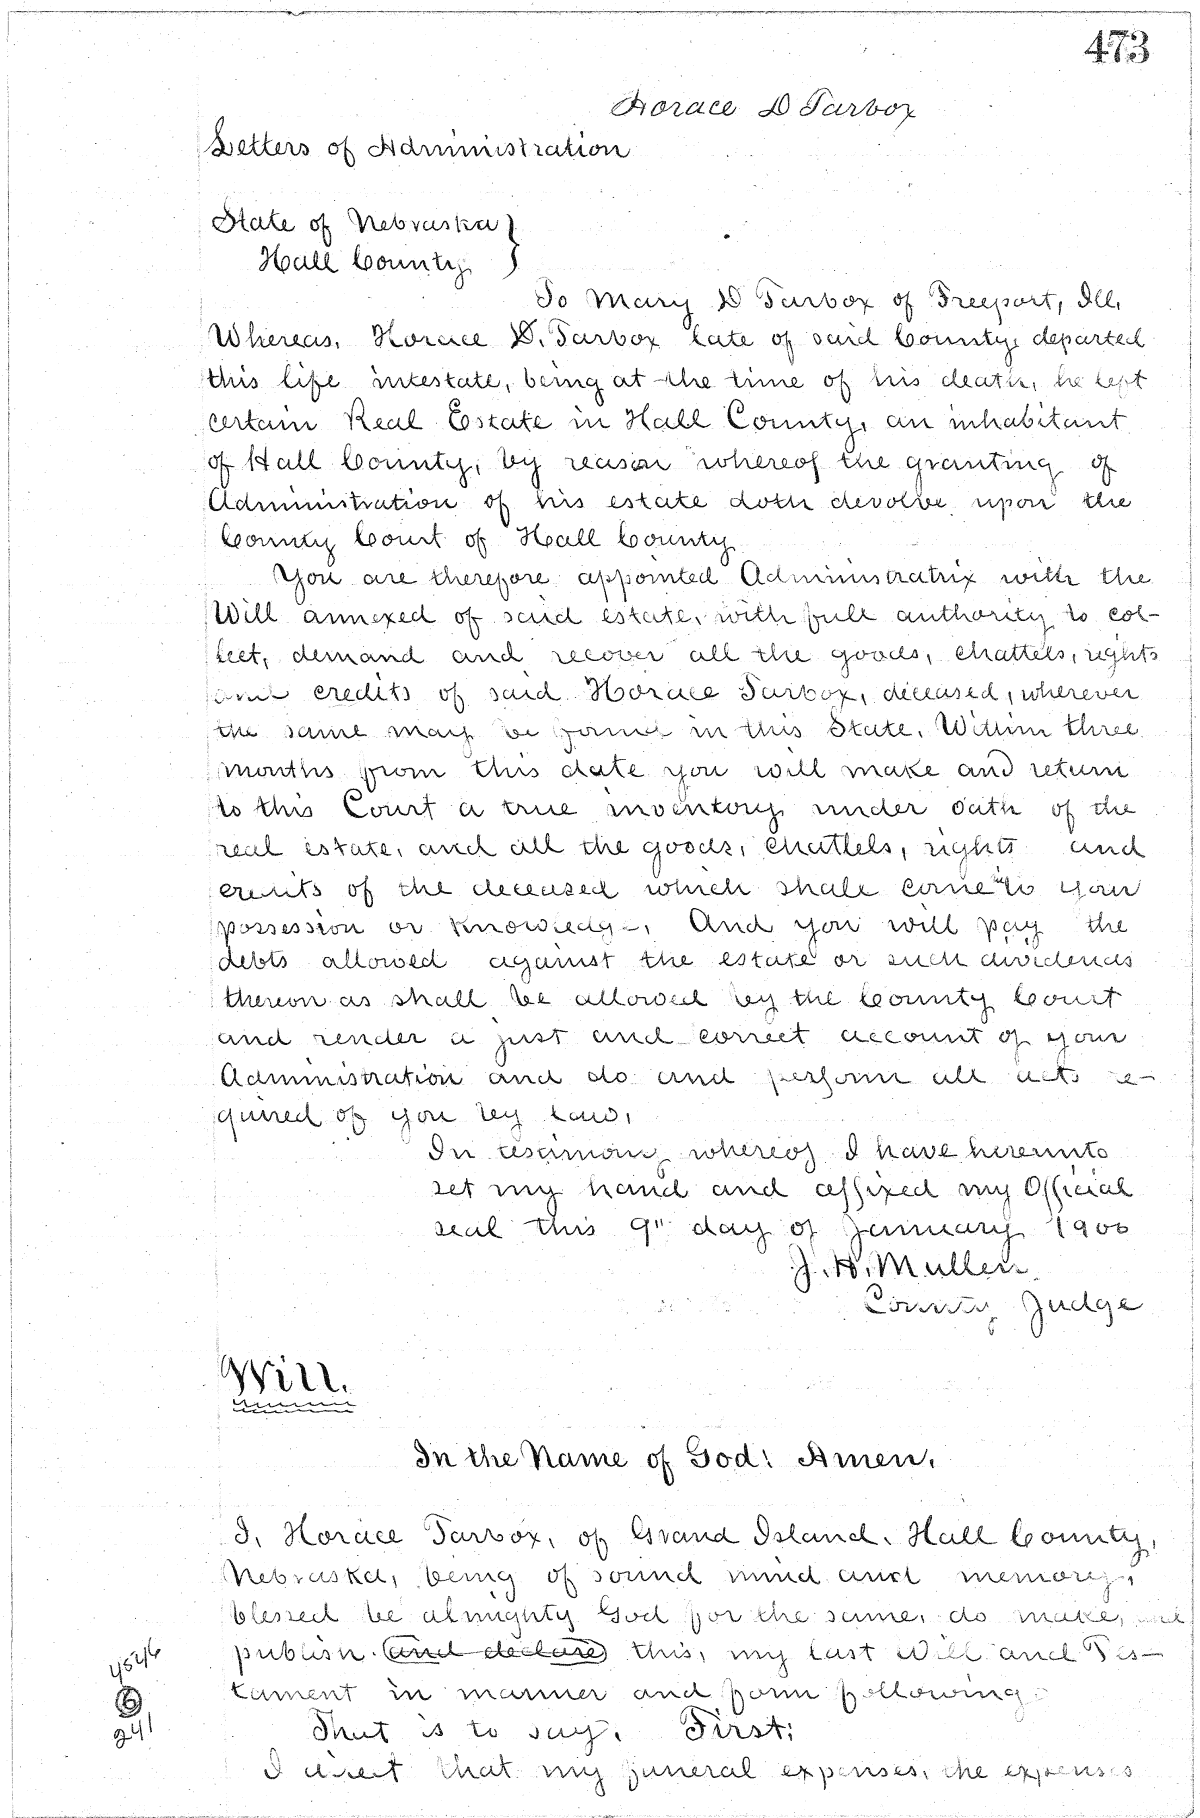 473
Horace D Tarbox
Letters of Administration
State of Nebraska }
Hall County }
To Mary D Tarbox of Freeport, Ill.
Whereas, Horace D. Tarbox late of said County, departed
this life intestate, being at the time of his death, he left
certain Real Estate in Hall County, an inhabitant
of Hall County, by reason whereof the granting of
Administration of his estate doth devolve upon the
County Court of Hall County
You are therefore appointed Administratrix with the
Will annexed of said estate, with full authority to col-
lect, demand and recover all the goods, chattels, rights
and credits of said Horace Tarbox, deceased, wherever
the same may be found in this State. Within three
months from this date you will make and return
to this Court a true inventory under oath of the
real estate, and all the goods, chattels, rights and
credits of the deceased which shall come to your
possession or knowledge, And you will pay the
debts allowed against the estate or such dividends
thereon as shall be allowed by the County Court
and render a just and correct account of your
Administration and do and perform all acts re-
quired of you by law,
In testimony whereof I have hereunto
set my hand and affixed my Official
seal this 9" day of January 1900
J. H. Mullen
County Judge
Will.
In the Name of God: Amen.
I, Horace Tarbox, of Grand Island, Hall County,
Nebraska, being of sound mind and memory,
blessed be almighty God for the same, do make, and
publish and declare this, my last Will and Tes-
tament in manner and form following
That is to say, First:
I direct that my funeral expenses, the expenses
4546
6
241